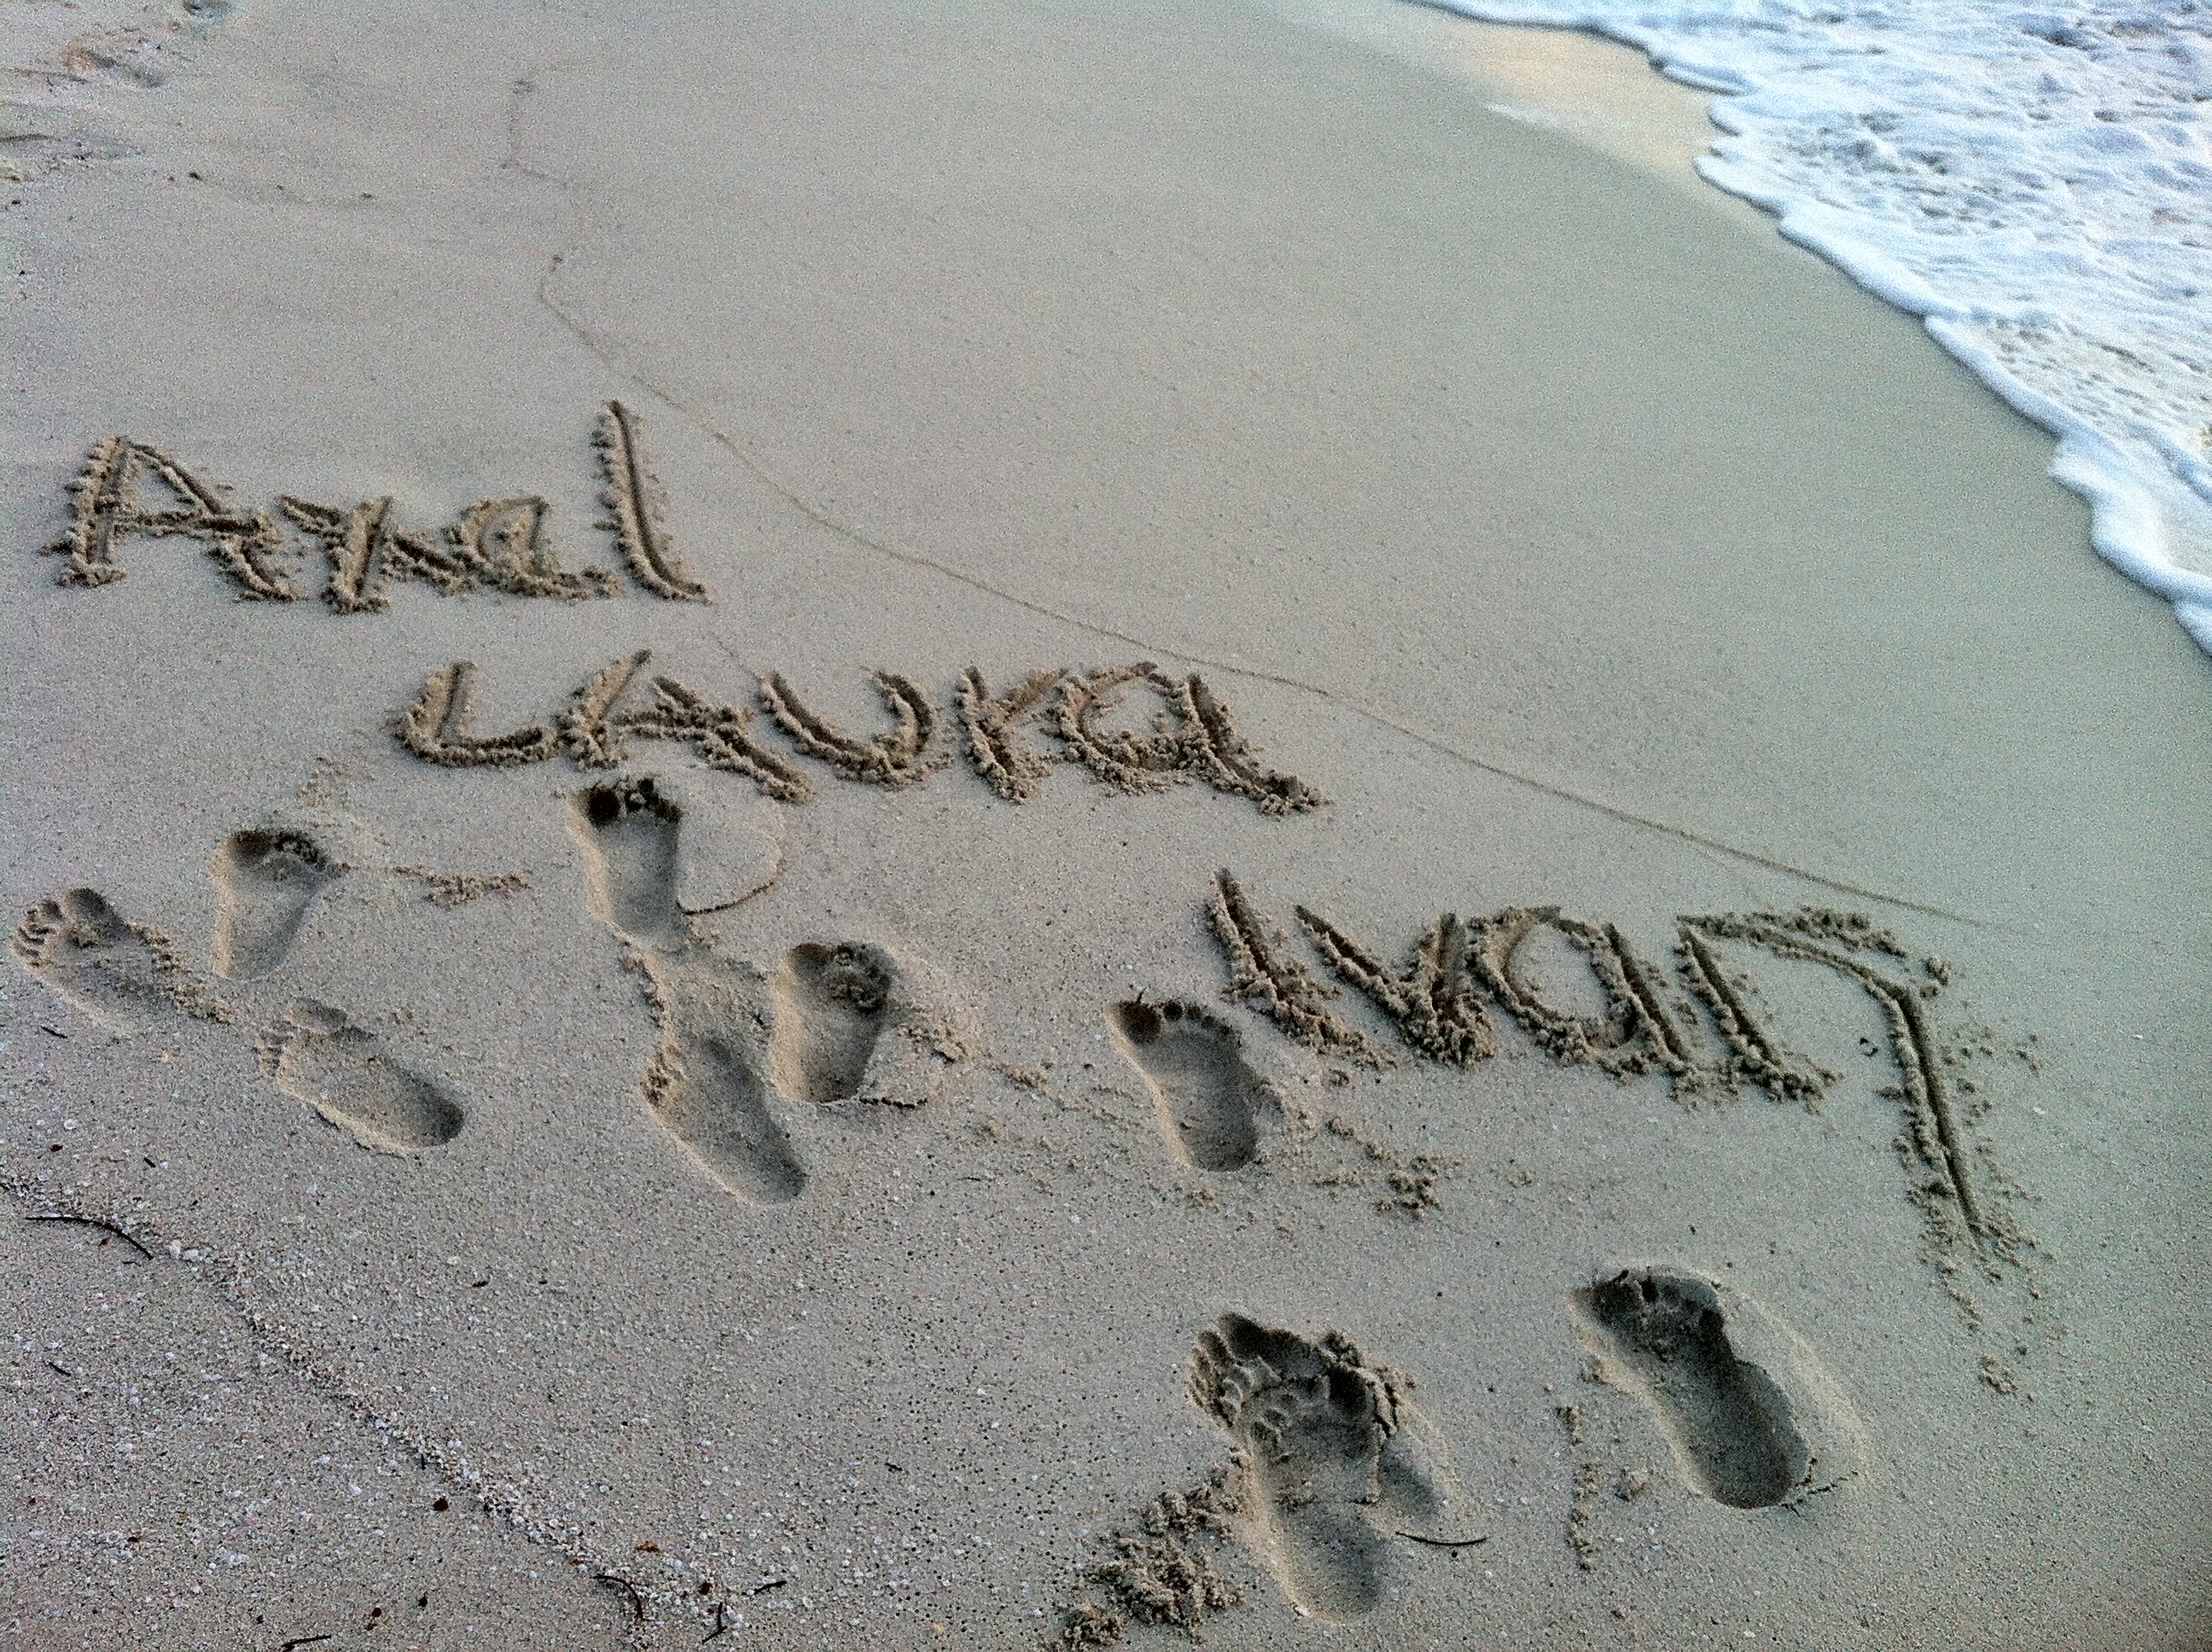 Axel
LAUra
Ivan